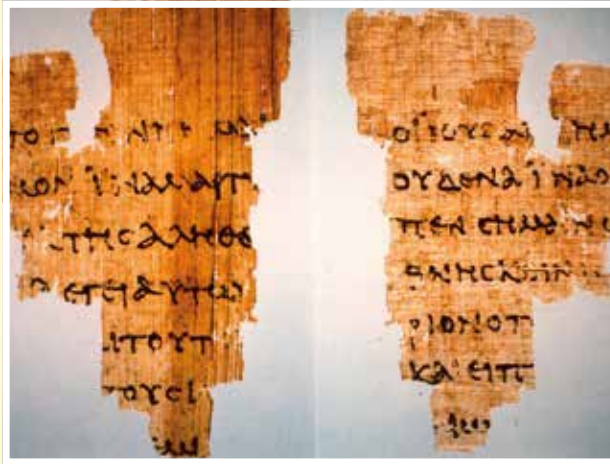 ΜΟΝ ΪΝΑ ΜΑΡΤΥ
ΤΗϹ ΑΛΗΘΕ
ΛΕΓΕΙ ΑΥΤΩ
ΑΙ ΤΟΥΤ
ΤΟΥϹ Ι
ΜΙ
ΟΙ ΙΟΥΔΑΙ ΗΜ
ΟΥΔΕΝΑ ΪΝΑ Ο
ΠΕΝ ϹΗΜΑΙΝΩ
ΘΝΗϹΚΕΙΝ
ΡΙΟΝ Ο Π
ΚΑΙ ΕΙΠ